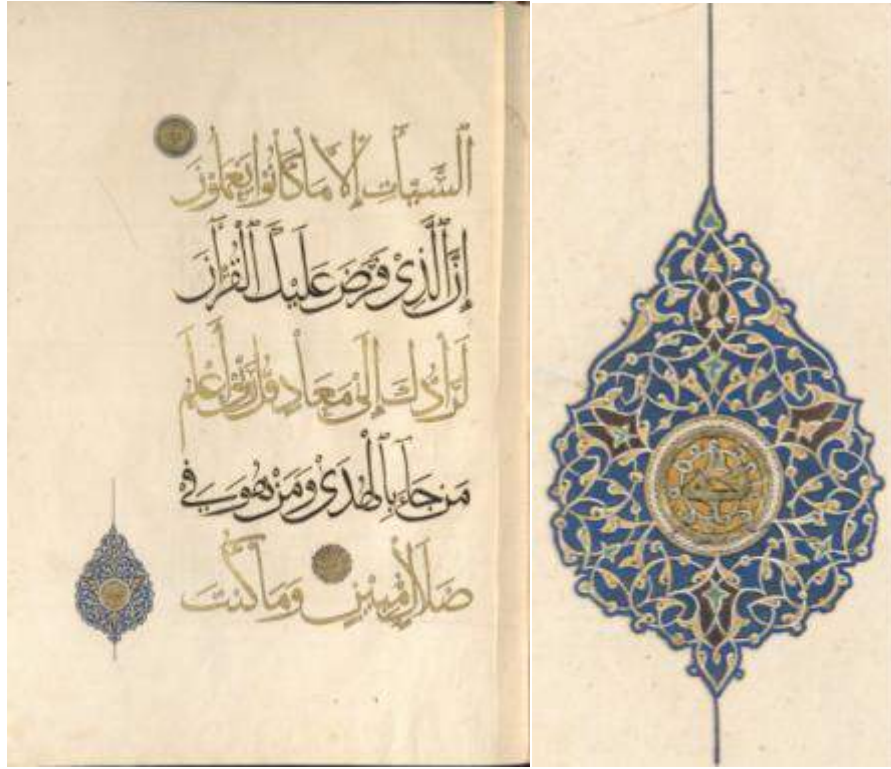 ٱلسَّيِّـَٔاتِ إِلَّا مَا كَانُوا يَعْمَلُونَ
إِنَّ ٱلَّذِي فَرَضَ عَلَيْكَ ٱلْقُرْآنَ
لَرَآدُّكَ إِلَىٰ مَعَادٍ قُل رَّبِّي أَعْلَمُ
مَن جَآءَ بِٱلْهُدَىٰ وَمَنْ هُوَ فِي
ضَلَالٍ مُّبِينٍ وَمَا كُنتَ